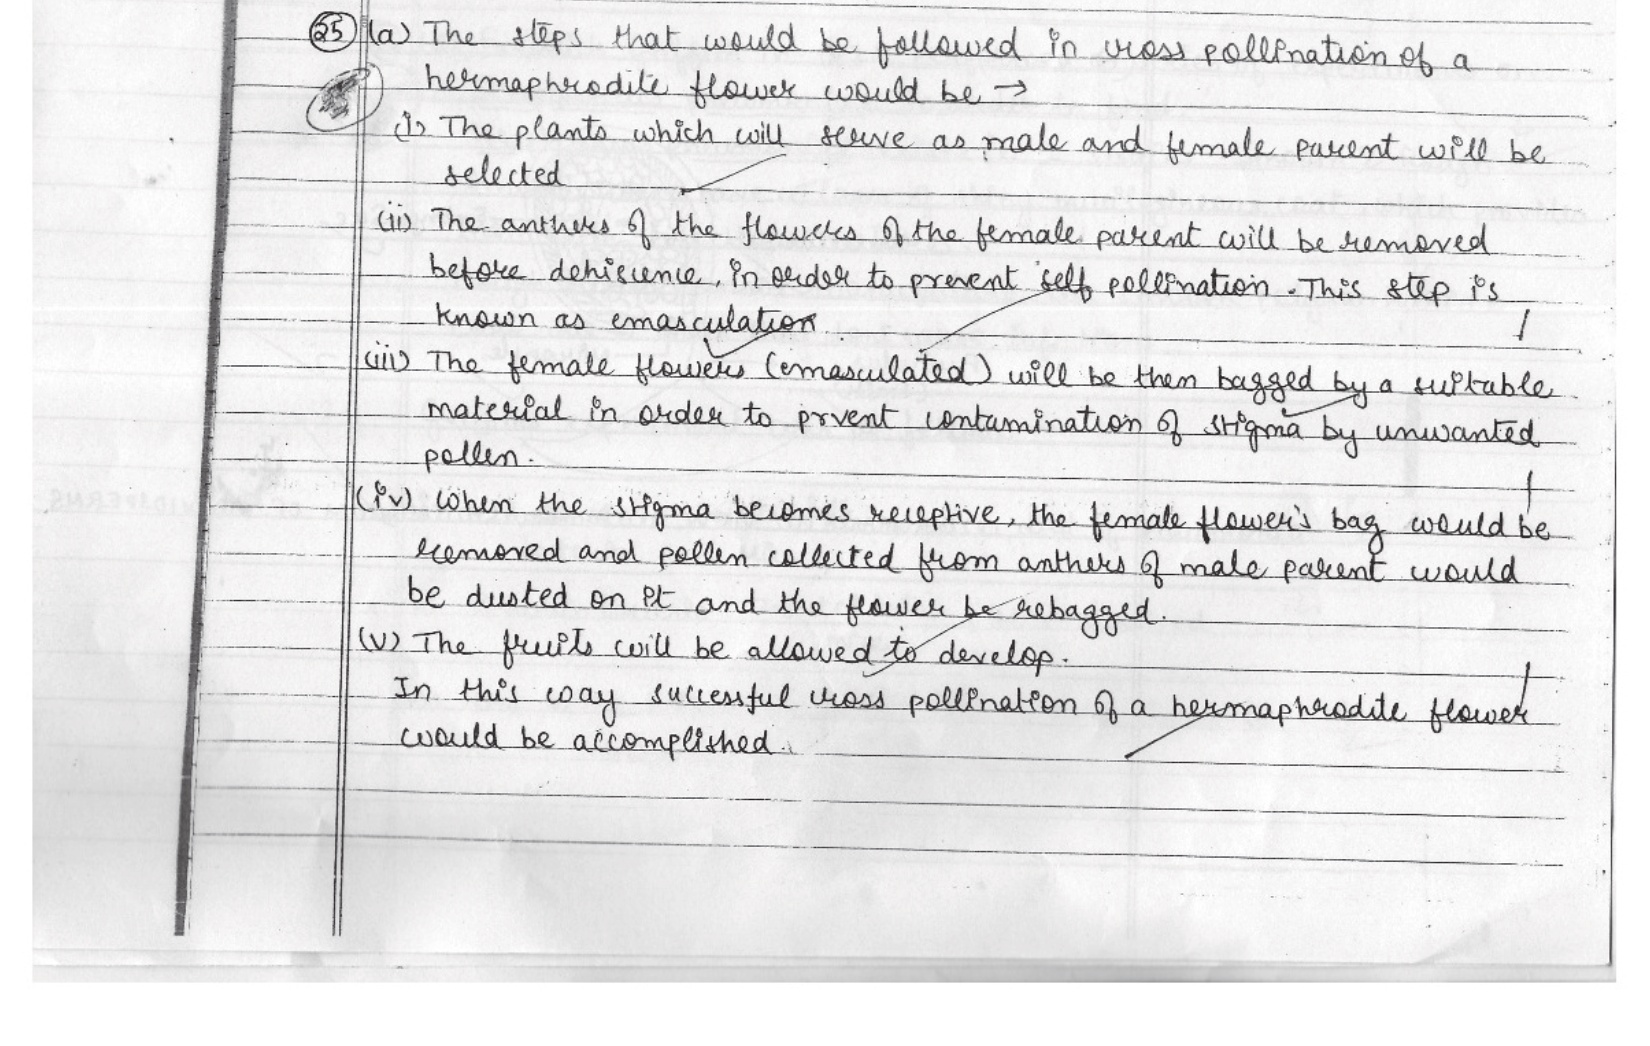 25 (a) The steps that would be followed in cross pollination of a
hermaphrodite flower would be →
(i) The plants which will serve as male and female parent will be
selected
(ii) The anthers of the flowers of the female parent will be removed
before dehiscence, in order to prevent self pollination. This step is
known as emasculation
1
(iii) The female flowers (emasculated) will be then bagged by a suitable
material in order to prvent contamination of stigma by unwanted
pollen.
1
(iv) When the stigma becomes receptive, the female flower's bag would be
removed and pollen collected from anthers of male parent would
be dusted on it and the flower be rebagged.
(v) The fruits will be allowed to develop.
1
In this way successful cross pollination of a hermaphrodite flower
would be accomplished.